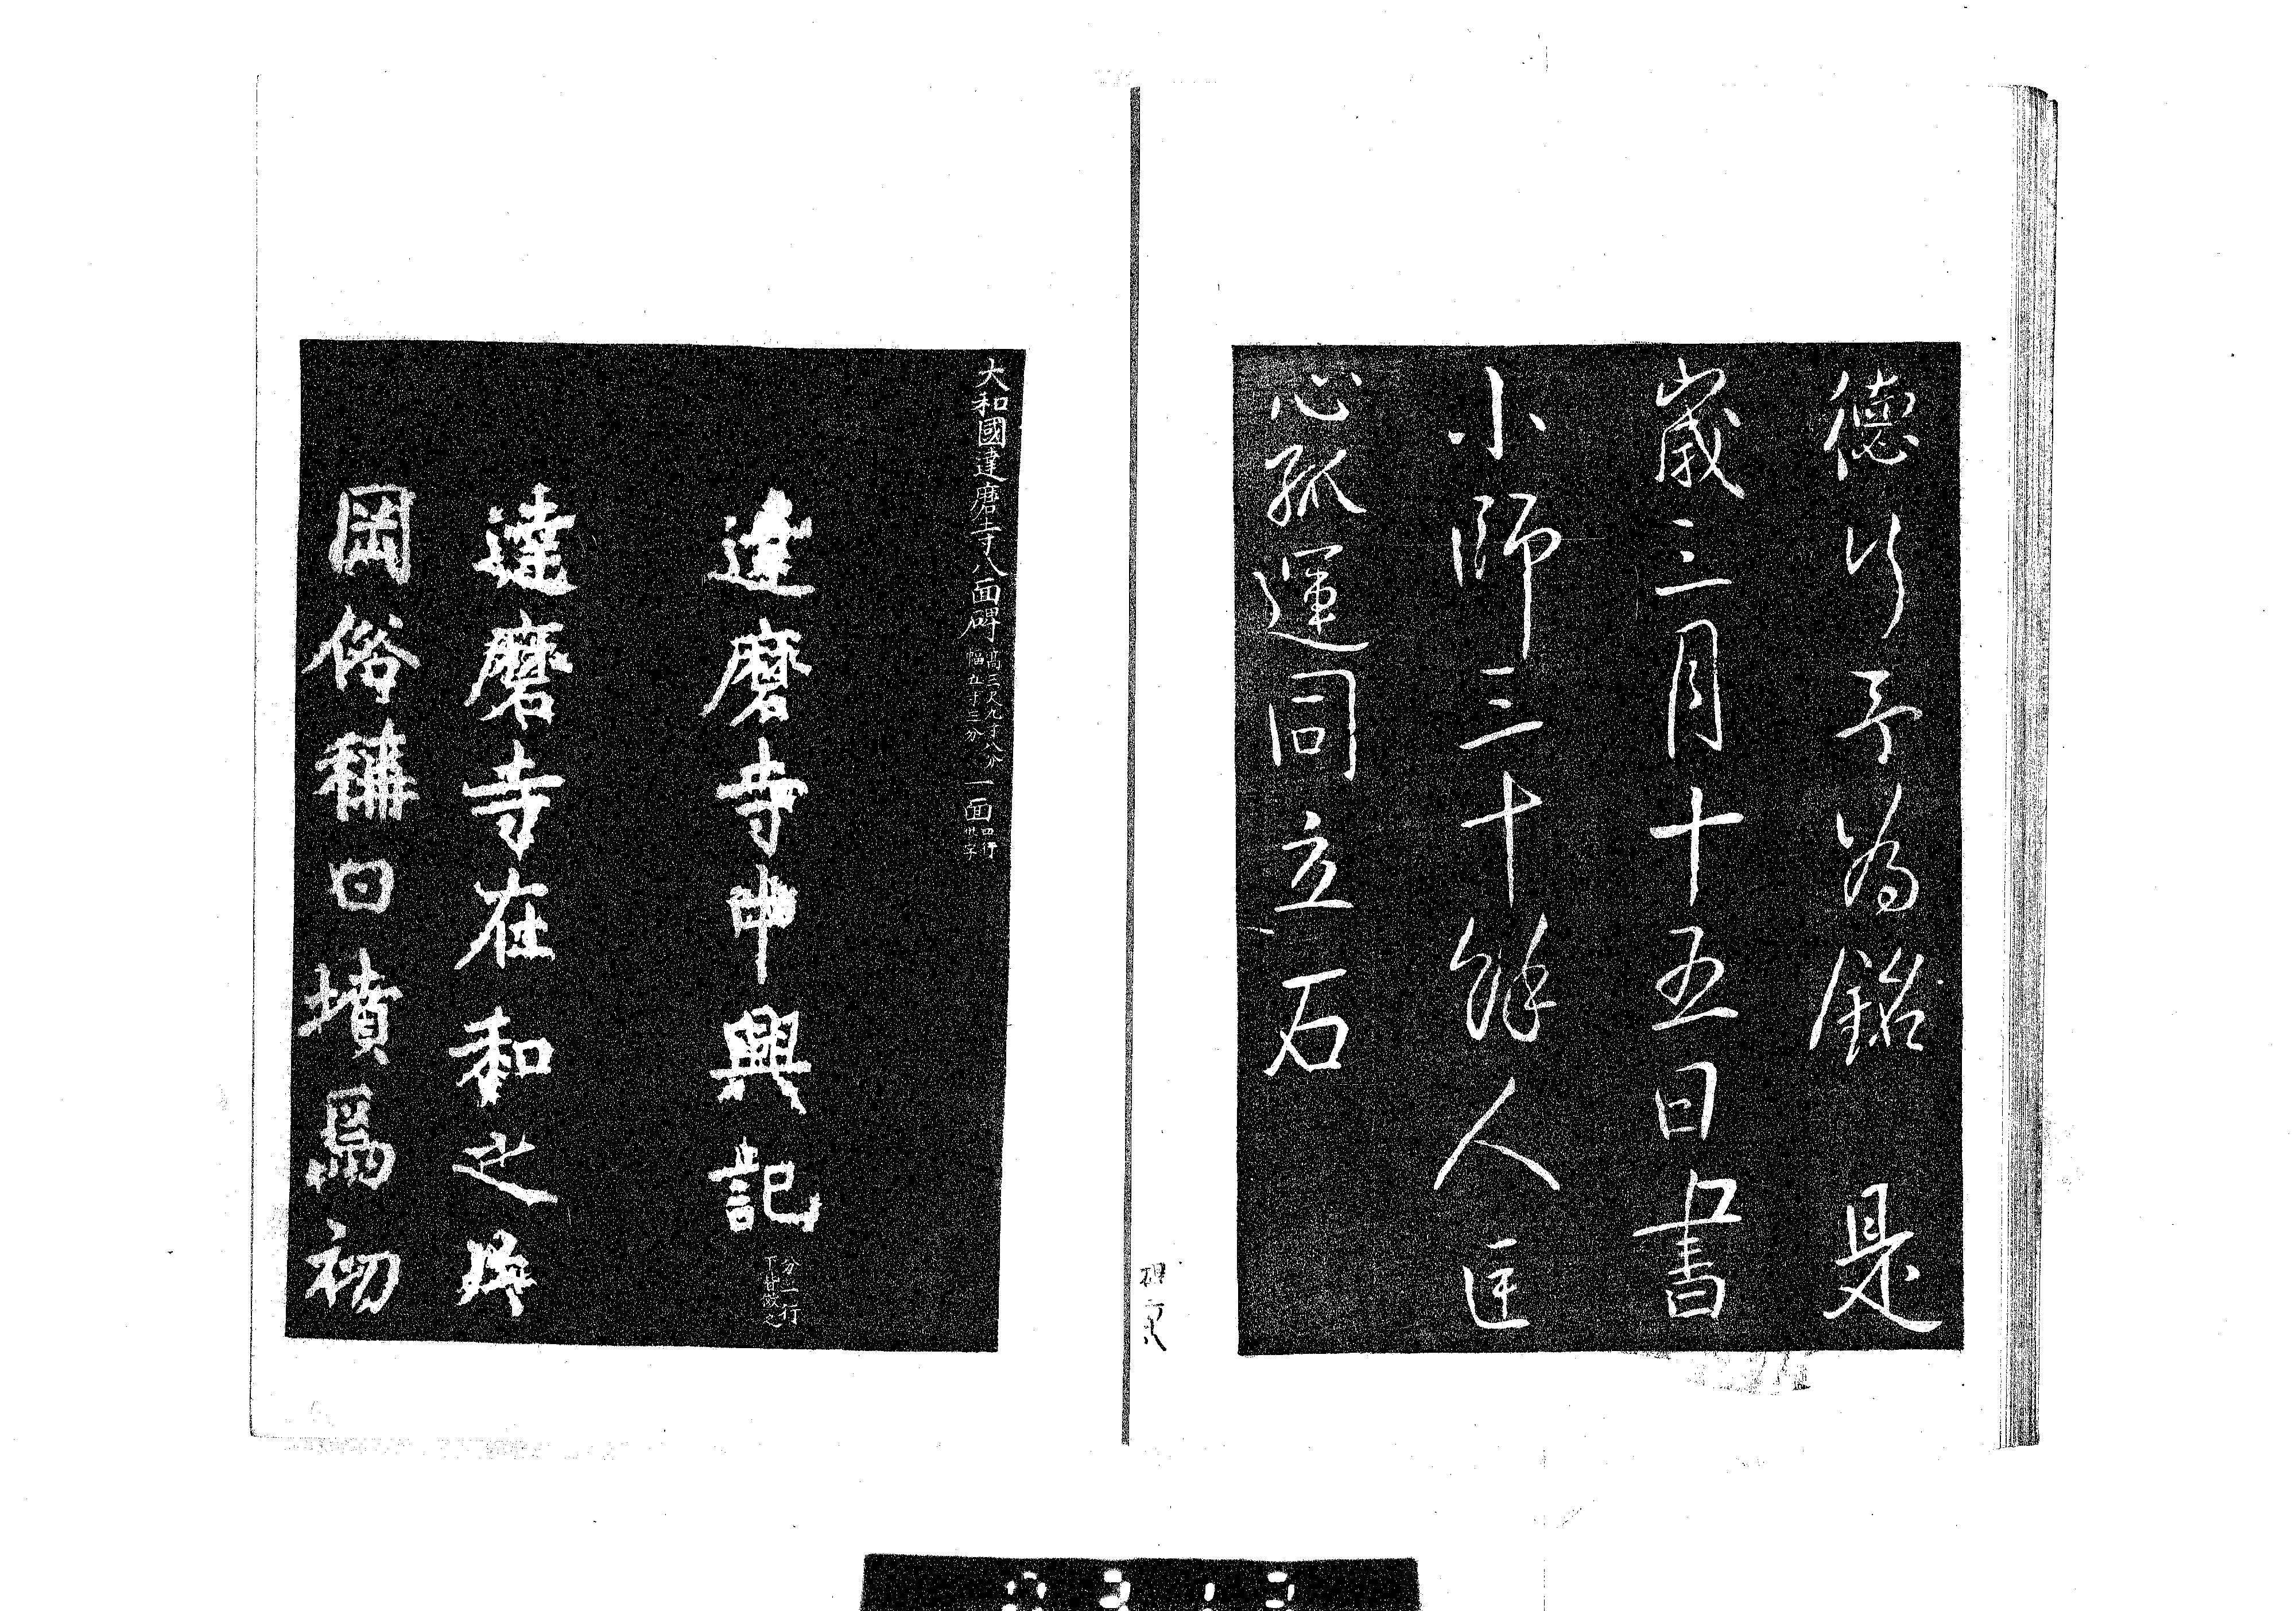 德行予為銘 是
歲三月十五日書
小師三十餘人匡
心孤運同立石
大和國達磨寺八面碑 高三尺九寸八分 幅五寸三分 一面 四行 卅字
達磨寺中興記
分一行
下皆效之
達磨寺在和之片
岡俗稱曰墳爲初